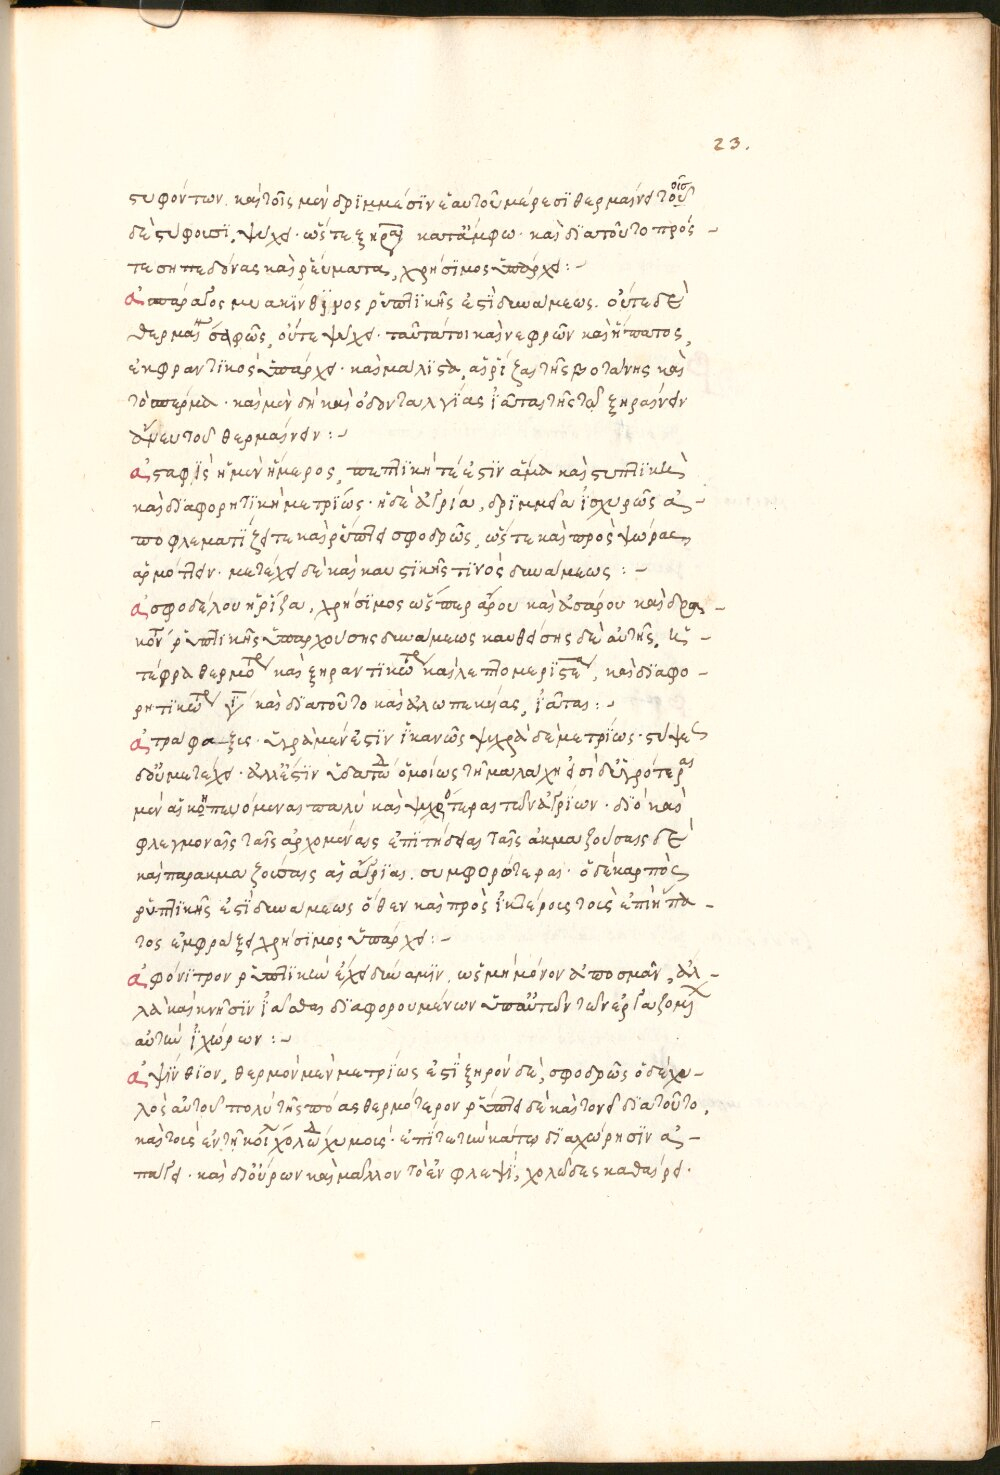 23.
στυφόντων. καὶ τοῖς μὲν δριμμέσϊν ἑαυτοῦ μέρεσϊ θερμαίνει τοῖς
δὲ στύφουσϊ, ψύχει· ὥστε ξηραίνει κατἄμφω· καὶ δϊατοῦτο πρός -
τε σηπεδόνας καὶ ῥεύματα, χρήσϊμος ὑπάρχει :-
ἀσπάραγος μυακίνθϊνος ῥυπτϊκῆς ἐστὶ δυνάμεως. οὔτε δὲ
θερμαίνει σαφῶς, οὔτε ψύχει· ταῦτά τοι καὶ νεφρῶν καὶ ἥπατος,
ἐκφραντϊκὸς ὑπάρχει· καὶ μάλϊστα, αἱ ῥίζαι τῆς βοτάνης καὶ
τὸ σπέρμα· καὶ μὲν δὴ καὶ ὀδονταλγίας ἰᾶται τῆς τῶ ξηραίνειν
ἄνευ τοῦ θερμαίνειν :-
ἀσταφὶς ἡ μὲν ἥμερος, πεπτϊκή τέ ἐστϊν ἅμα καὶ στυπτϊκὴ
καὶ δϊαφορητϊκὴ μετρίως· ἡ δὲ ἀγρία, δριμμεῖα ἰσχυρῶς ἀ -
ποφλεματίζει τε καὶ ῥύπτει σφοδρῶς, ὥστε καὶ πρὸς ψώρας
ἁρμόττειν· μετέχει δὲ καὶ καυστϊκῆς τϊνὸς δυνάμεως :-
ἀσφοδέλου ἡ ῥίζα, χρήσϊμος ὥσπερ ἄρου καὶ ἀσάρου καὶ δρα -
κον ῥυπτικῆς ὑπαρχούσης δυνάμεως καυθείσης δὲ αὐτῆς, ἡ -
τέφρα θερμοτ καὶ ξηραντϊκωτ καὶ λεπτομεριστε, καὶ δϊαφο -
ρητϊκωτ γ καὶ δϊατοῦτο καὶ ἀλωπεκίας, ἰᾶται :-
ἀτράφαξις. ὑγρὰ μέν ἐστϊν ἱκανῶς ψυχρὰ δὲ μετρίως· στύψεως
δ' οὐ μετέχει· ἀλλ' ἔστϊν ὑδατώδ ὁμοίως τῆ μαλάχη εἰσὶ δὲ ὑγρότεραι
μὲν αἱ κηπευόμεναι πολὺ καὶ ψυχρότεραι τῶν ἀγρίων· δϊὸ καὶ
φλεγμοναῖς ταῖς ἀρχομέναις ἐπϊτήδειαι ταῖς ἀκμαζούσαις δὲ
καὶ παρακμαζούσαις αἱ ἄγρϊαι. συμφορώτεραι· ὁ δὲ καρπὸς
ῥυπτϊκῆς ἐστὶ δυνάμεως ὅθεν καὶ πρὸς ἰκτέροις τοῖς ἐπὶ ἥπα -
τος ἐμφράξει χρήσϊμος ὑπάρχει :-
ἀφόνιτρον ῥυπτϊκὴν ἔχει δύναμϊν. ὡς μὴ μόνον ἀποσμᾶν, ἀλ -
λὰ καὶ κνῆσϊν ἰᾶσθαι δϊαφορουμένων ὑπ' αὐτῶν τῶν ἐργαζομεν
αὐτὴν ἰχώρων :-
ἀψίνθϊον, θερμὸν μὲν μετρίως ἐστὶ ξηρὸν δὲ, σφοδρῶς ὁ δὲ χυ -
λὸς αὐτοῦ πολὺ τῆς πόας θερμότερον ῥύπτει δὲ καὶ τονοῖ δϊατοῦτο,
καὶ τοῖς ἐν τῆ κοιλ χολωδ χυμοῖς· ἐπὶ τε τὴν κάτω δϊαχώρησϊν ἀ -
πάγει· καὶ δι' οὔρων καὶ μᾶλλον τὸ ἐν φλεψὶ, χολῶδες καθαίρει·